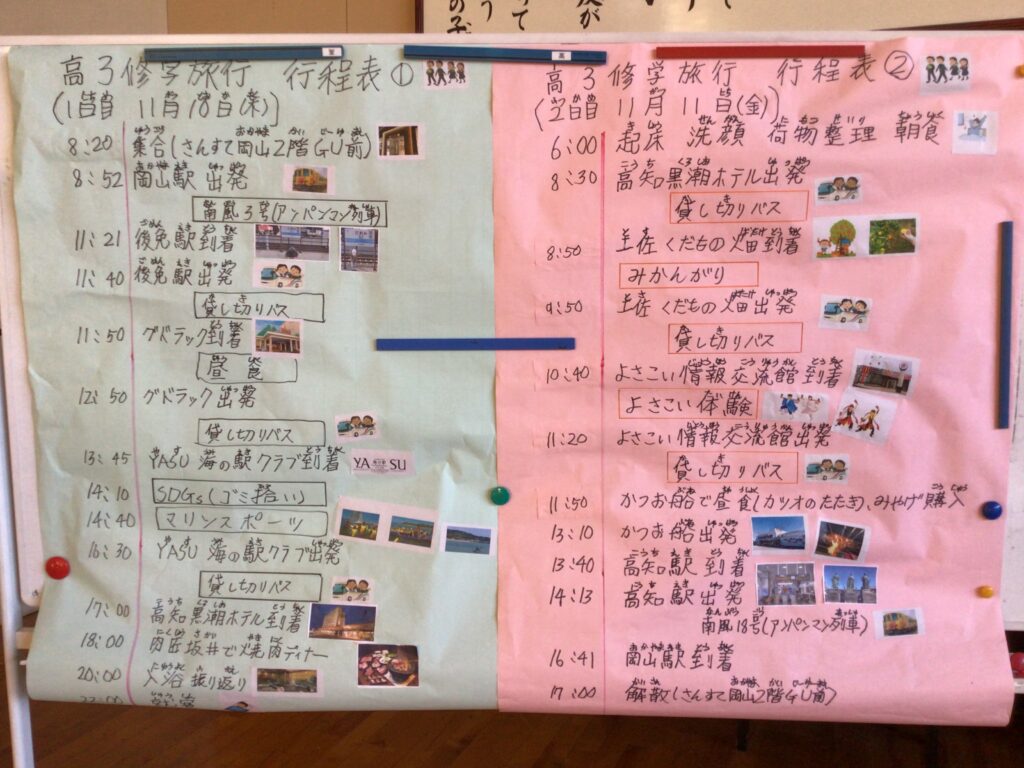 高3 修学旅行 行程表①
8:20 集合(さんすて岡山2階GU前)
8:52 岡山駅 出発
南風3号(アンパンマン列車)
11:21 後免駅到着
11:40 後免駅出発
貸し切りバス
11:50 グドラック到着
昼食
12:50 グドラック出発
貸し切りバス
13:45 YASU海の駅クラブ到着
YASU
14:10 SDGs(ゴミ拾い)
14:40 マリンスポーツ
16:30 YASU海の駅クラブ出発
貸し切りバス
17:00 高知黒潮ホテル到着
18:00 肉匠坂井で焼肉ディナー
20:00 入浴 振り返り
高3 修学旅行 行程表②
(2日目 11月11日(金))
6:00 起床 洗顔 荷物整理 朝食
8:30 高知黒潮ホテル出発
貸し切りバス
8:50 土佐くだもの畑到着
みかんがり
9:50 土佐くだもの畑出発
貸し切りバス
10:40 よさこい情報交流館到着
よさこい体験
11:20 よさこい情報交流館出発
貸し切りバス
11:50 かつお船で昼食(カツオのたたき)、みやげ購入
13:10 かつお船出発
13:40 高知駅到着
14:13 高知駅出発
南風18号(アンパンマン列車)
16:41 岡山駅到着
17:00 解散(さんすて岡山2階GU前)